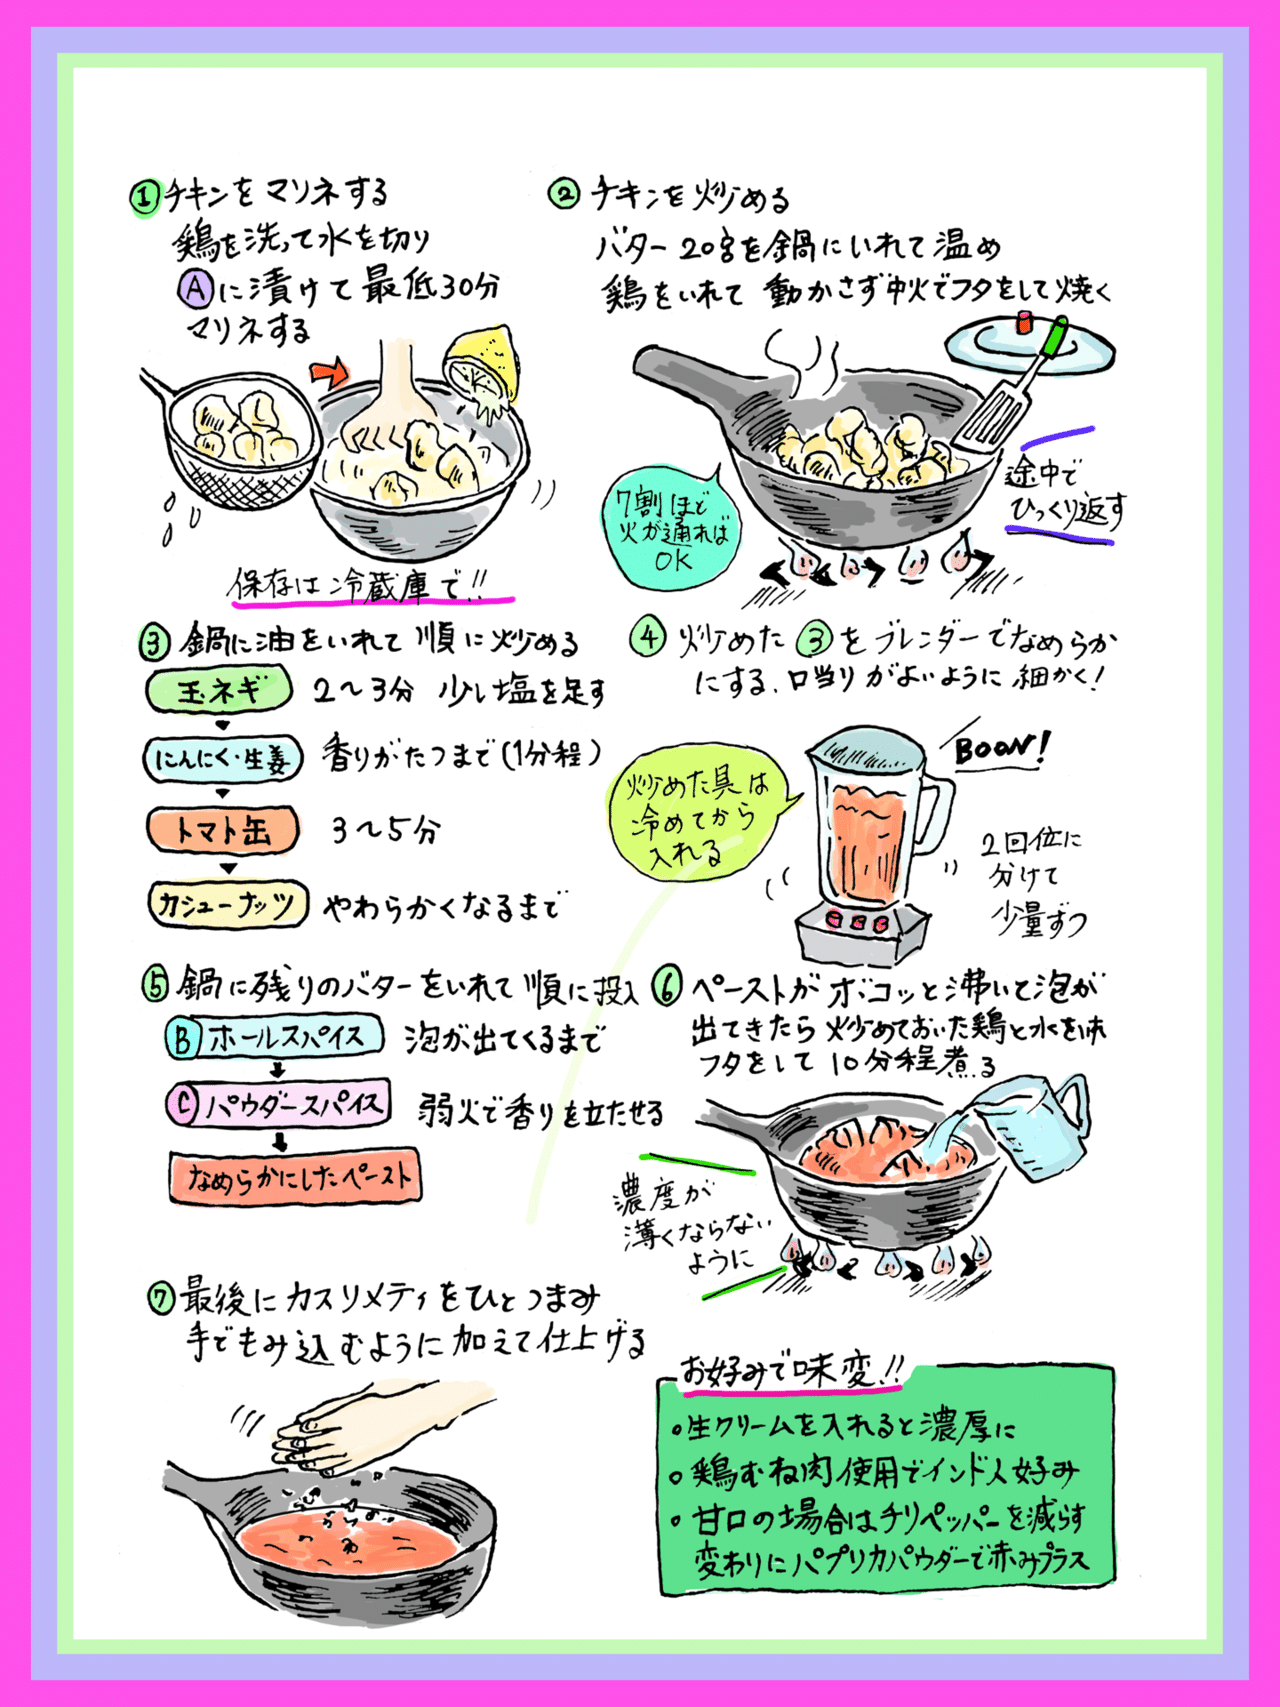 ① チキンをマリネする
鶏を洗って水を切り
Ⓐに漬けて最低30分
マリネする
保存は冷蔵庫で!!
② チキンを炒める
バター20gを鍋にいれて温め
鶏をいれて 動かさず中火でフタをして焼く
7割ほど
火が通れば
OK
途中で
ひっくり返す
③ 鍋に油をいれて順に炒める
玉ネギ 2〜3分 少し塩を足す
にんにく・生姜 香りがたつまで(1分程)
トマト缶 3〜5分
カシューナッツ やわらかくなるまで
④ 炒めた③をブレンダーでなめらか
にする、口当りがよいように細かく!
炒めた具は
冷めてから
入れる
BOON!
2回位に
分けて
少量ずつ
⑤ 鍋に残りのバターをいれて順に投入
Ⓑホールスパイス 泡が出てくるまで
Ⓒパウダースパイス 弱火で香りを立たせる
なめらかにしたペースト
⑥ ペーストがボコッと沸いて泡が
出てきたら炒めておいた鶏と水を
フタをして10分程煮る
濃度が
薄くならない
ように
⑦ 最後にカスリメティをひとつまみ
手でもみ込むように加えて仕上げる
お好みで味変!!
・生クリームを入れると濃厚に
・鶏むね肉使用でインド人好み
・甘口の場合はチリペッパーを減らす
変わりにパプリカパウダーで赤みプラス